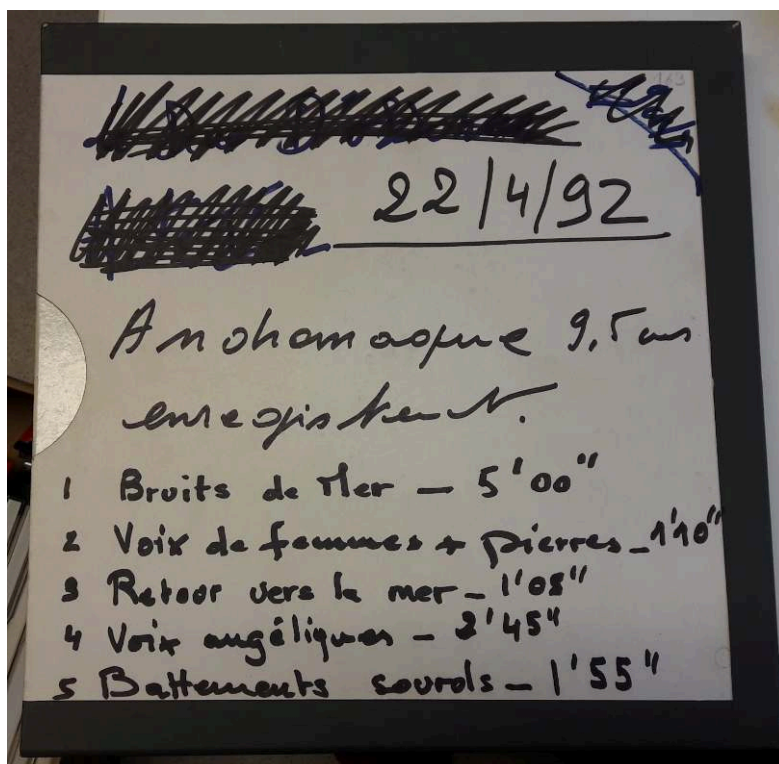 163
22/4/92
Andromaque 9,5 cm
enregistrement.
1 Bruits de Mer — 5'00"
2 Voix de femmes + pierres — 1'10"
3 Retour vers la mer — 1'08"
4 Voix angéliques — 2'45"
5 Battements sourds — 1'55"